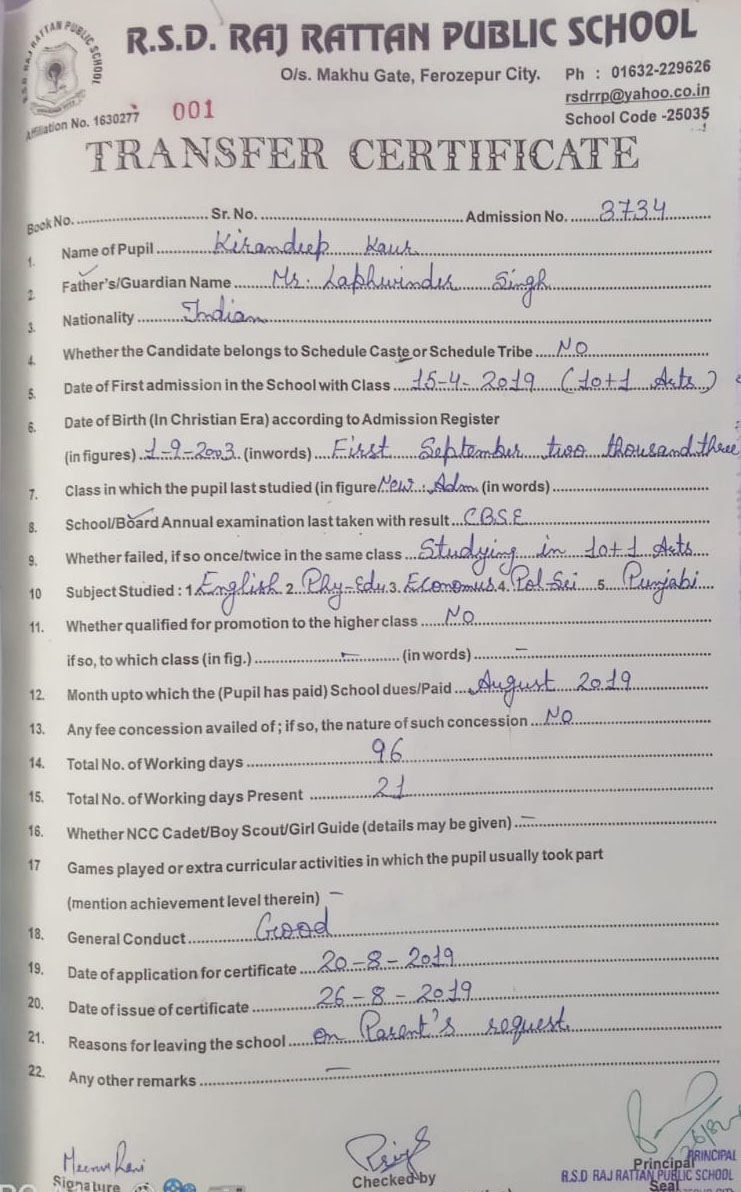 R.S.D. RAJ RATTAN PUBLIC SCHOOL
R.S.D. RAJ RATTAN PUBLIC SCHOOL
O/s. Makhu Gate, Ferozepur City. Ph : 01632-229626
rsdrrp@yahoo.co.in
Affiliation No. 1630277 001 School Code -25035
TRANSFER CERTIFICATE
Book No. Sr. No. Admission No. 3734
1. Name of Pupil Kirandeep Kaur
2. Father's/Guardian Name Mr. Laphwinder Singh
3. Nationality Indian
4. Whether the Candidate belongs to Schedule Caste or Schedule Tribe NO
5. Date of First admission in the School with Class 15-4-2019 (10+1 Arts)
6. Date of Birth (In Christian Era) according to Admission Register
(in figures) 1-9-2003 (inwords) First September two thousand three
7. Class in which the pupil last studied (in figure New. Adm (in words)
8. School/Board Annual examination last taken with result CBSE
9. Whether failed, if so once/twice in the same class Studying in 10+1 Arts
10 Subject Studied : 1 English 2 Phy-Edu 3. Economus 4. Pol Sci 5. Punjabi
11. Whether qualified for promotion to the higher class NO
if so, to which class (in fig.) - (in words) -
12. Month upto which the (Pupil has paid) School dues/Paid August 2019
13. Any fee concession availed of ; if so, the nature of such concession NO
14. Total No. of Working days 96
15. Total No. of Working days Present 21
16. Whether NCC Cadet/Boy Scout/Girl Guide (details may be given) -
17 Games played or extra curricular activities in which the pupil usually took part
(mention achievement level therein) -
18. General Conduct Good
19. Date of application for certificate 20-8-2019
20. Date of issue of certificate 26-8-2019
21. Reasons for leaving the school on Parent's request
22. Any other remarks -
Meenu Rani
Signature Checked by Principal PRINCIPAL
R.S.D RAJ RATTAN PUBLIC SCHOOL
Seal